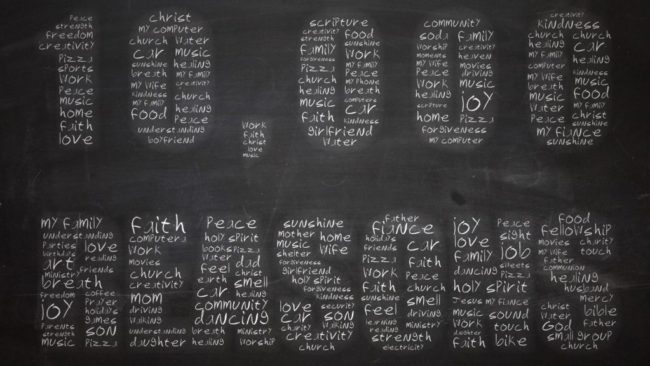 peace
strength
freedom
creativity
pizza
sports
work
peace
music
home
faith
love
christ
my computer
church water
car music
sunshine healing
breath my family
my wife creativity
kindness church
my family healing
food peace
understanding
boyfriend
work
faith
christ
love
music
scripture
creativity food
strength sunshine
family work
forgiveness car
pizza family
church peace
healing my phone
music breath
pizza computers
family car
faith kindness
girlfriend
water
community
soda family
worship freedom
moments creativity
my wife movies
peace driving
healing music
scripture joy
home pizza
forgiveness
my computer
creativity
kindness
church church
healing car
family my family
my computer water
my wife healing
breath peace
music food
my family christ
church sunshine
my fiance
sunshine
my family
understanding
parties love
birthdays
art movies
ministry friends
breath
freedom coffee
joy prayer
holidays
games
parents son
strength
music pizza
faith
computers
work
movies
church
creativity
mom
driving
walking
understanding
daughter
peace
holy spirit
books pizza
water dad
feel christ
earth smell
car healing
community
dancing
breath ministry
healing worship
sunshine
mother home
music wife
shelter
forgiveness
girlfriend
holy spirit
forgiveness
kindness
love security
car son
charity working
creativity
church
father
fiance
holidays
friends car
pizza
work family
faith church
sunshine smell
feel driving
learning ministry
strength
electricity
joy peace
love sight
family job
dancing sheets
pizza
holy spirit
Jesus my fiance
music sound
work touch
daughter
faith bike
food
fellowship
movies charity
pizza touch
father
communion
healing
husband
mercy
christ bible
water father
God
small group
church